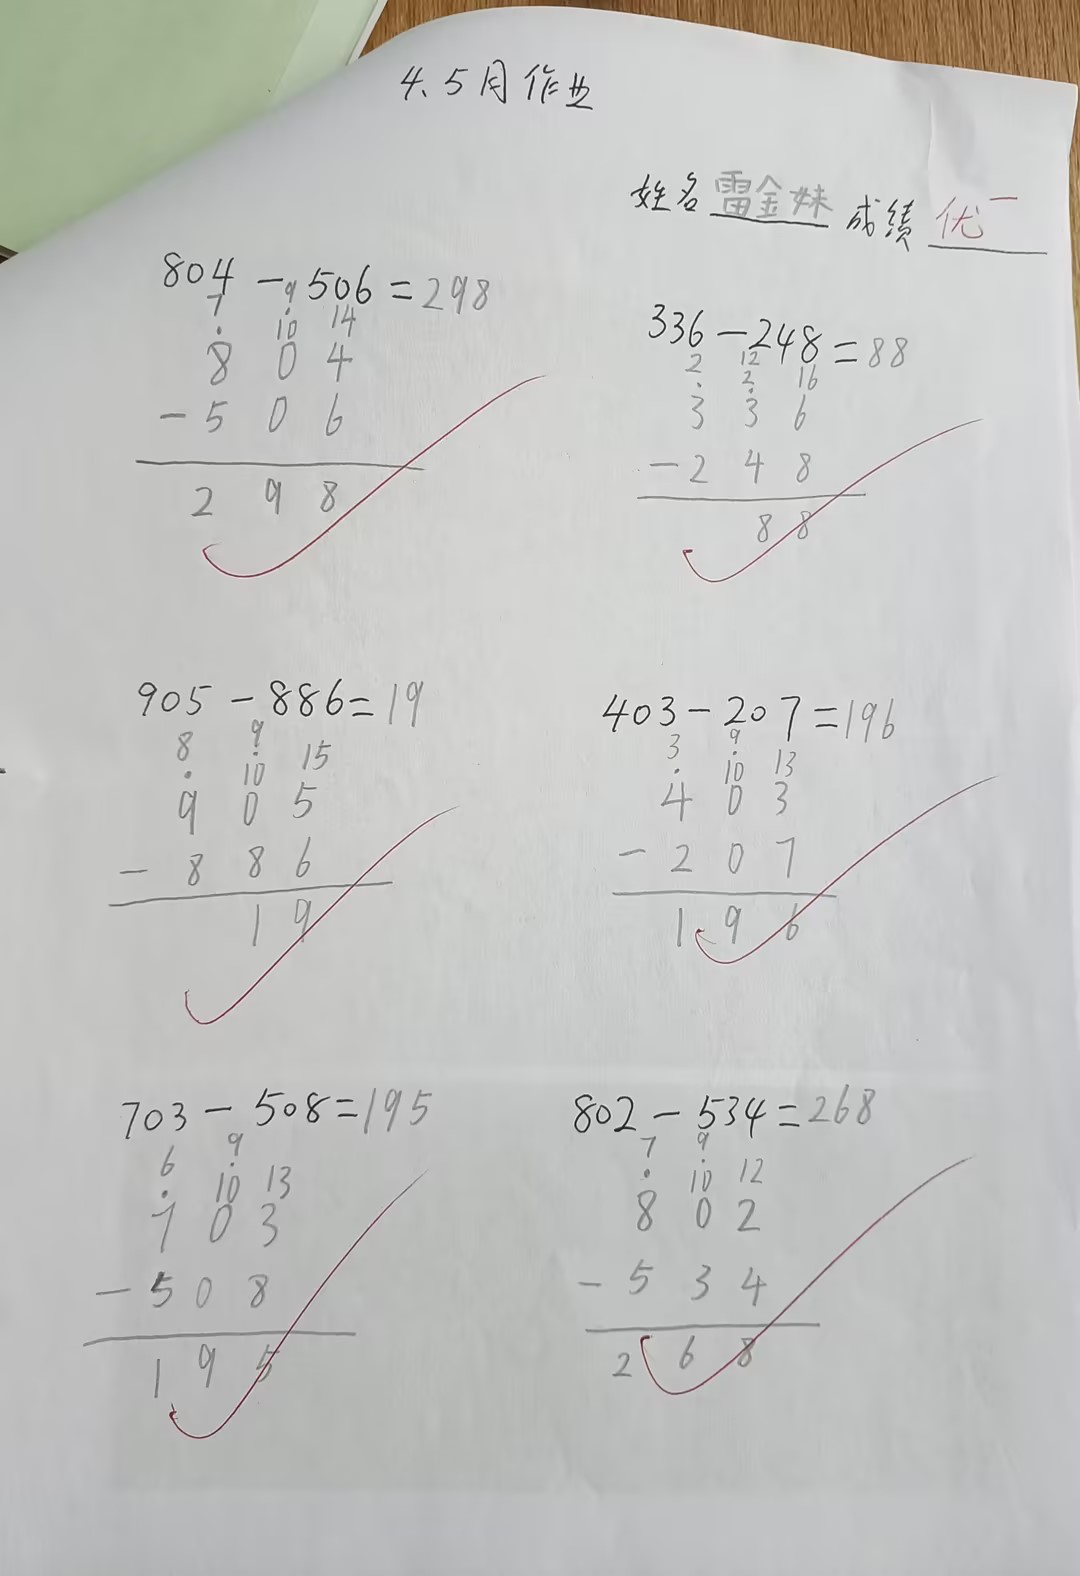 4、5月作业
姓名 雷金妹 成绩 优一
804-506=298
7 9
10 14
8 0 4
-5 0 6
2 9 8
336-248=88
2 12
2 16
3 3 6
-2 4 8
8 8
905-886=19
8 9
10 15
9 0 5
-8 8 6
1 9
403-207=196
3 9
10 13
4 0 3
-2 0 7
1 9 6
703-508=195
6 9
10 13
7 0 3
-5 0 8
1 9 5
802-534=268
7 9
10 12
8 0 2
-5 3 4
2 6 8